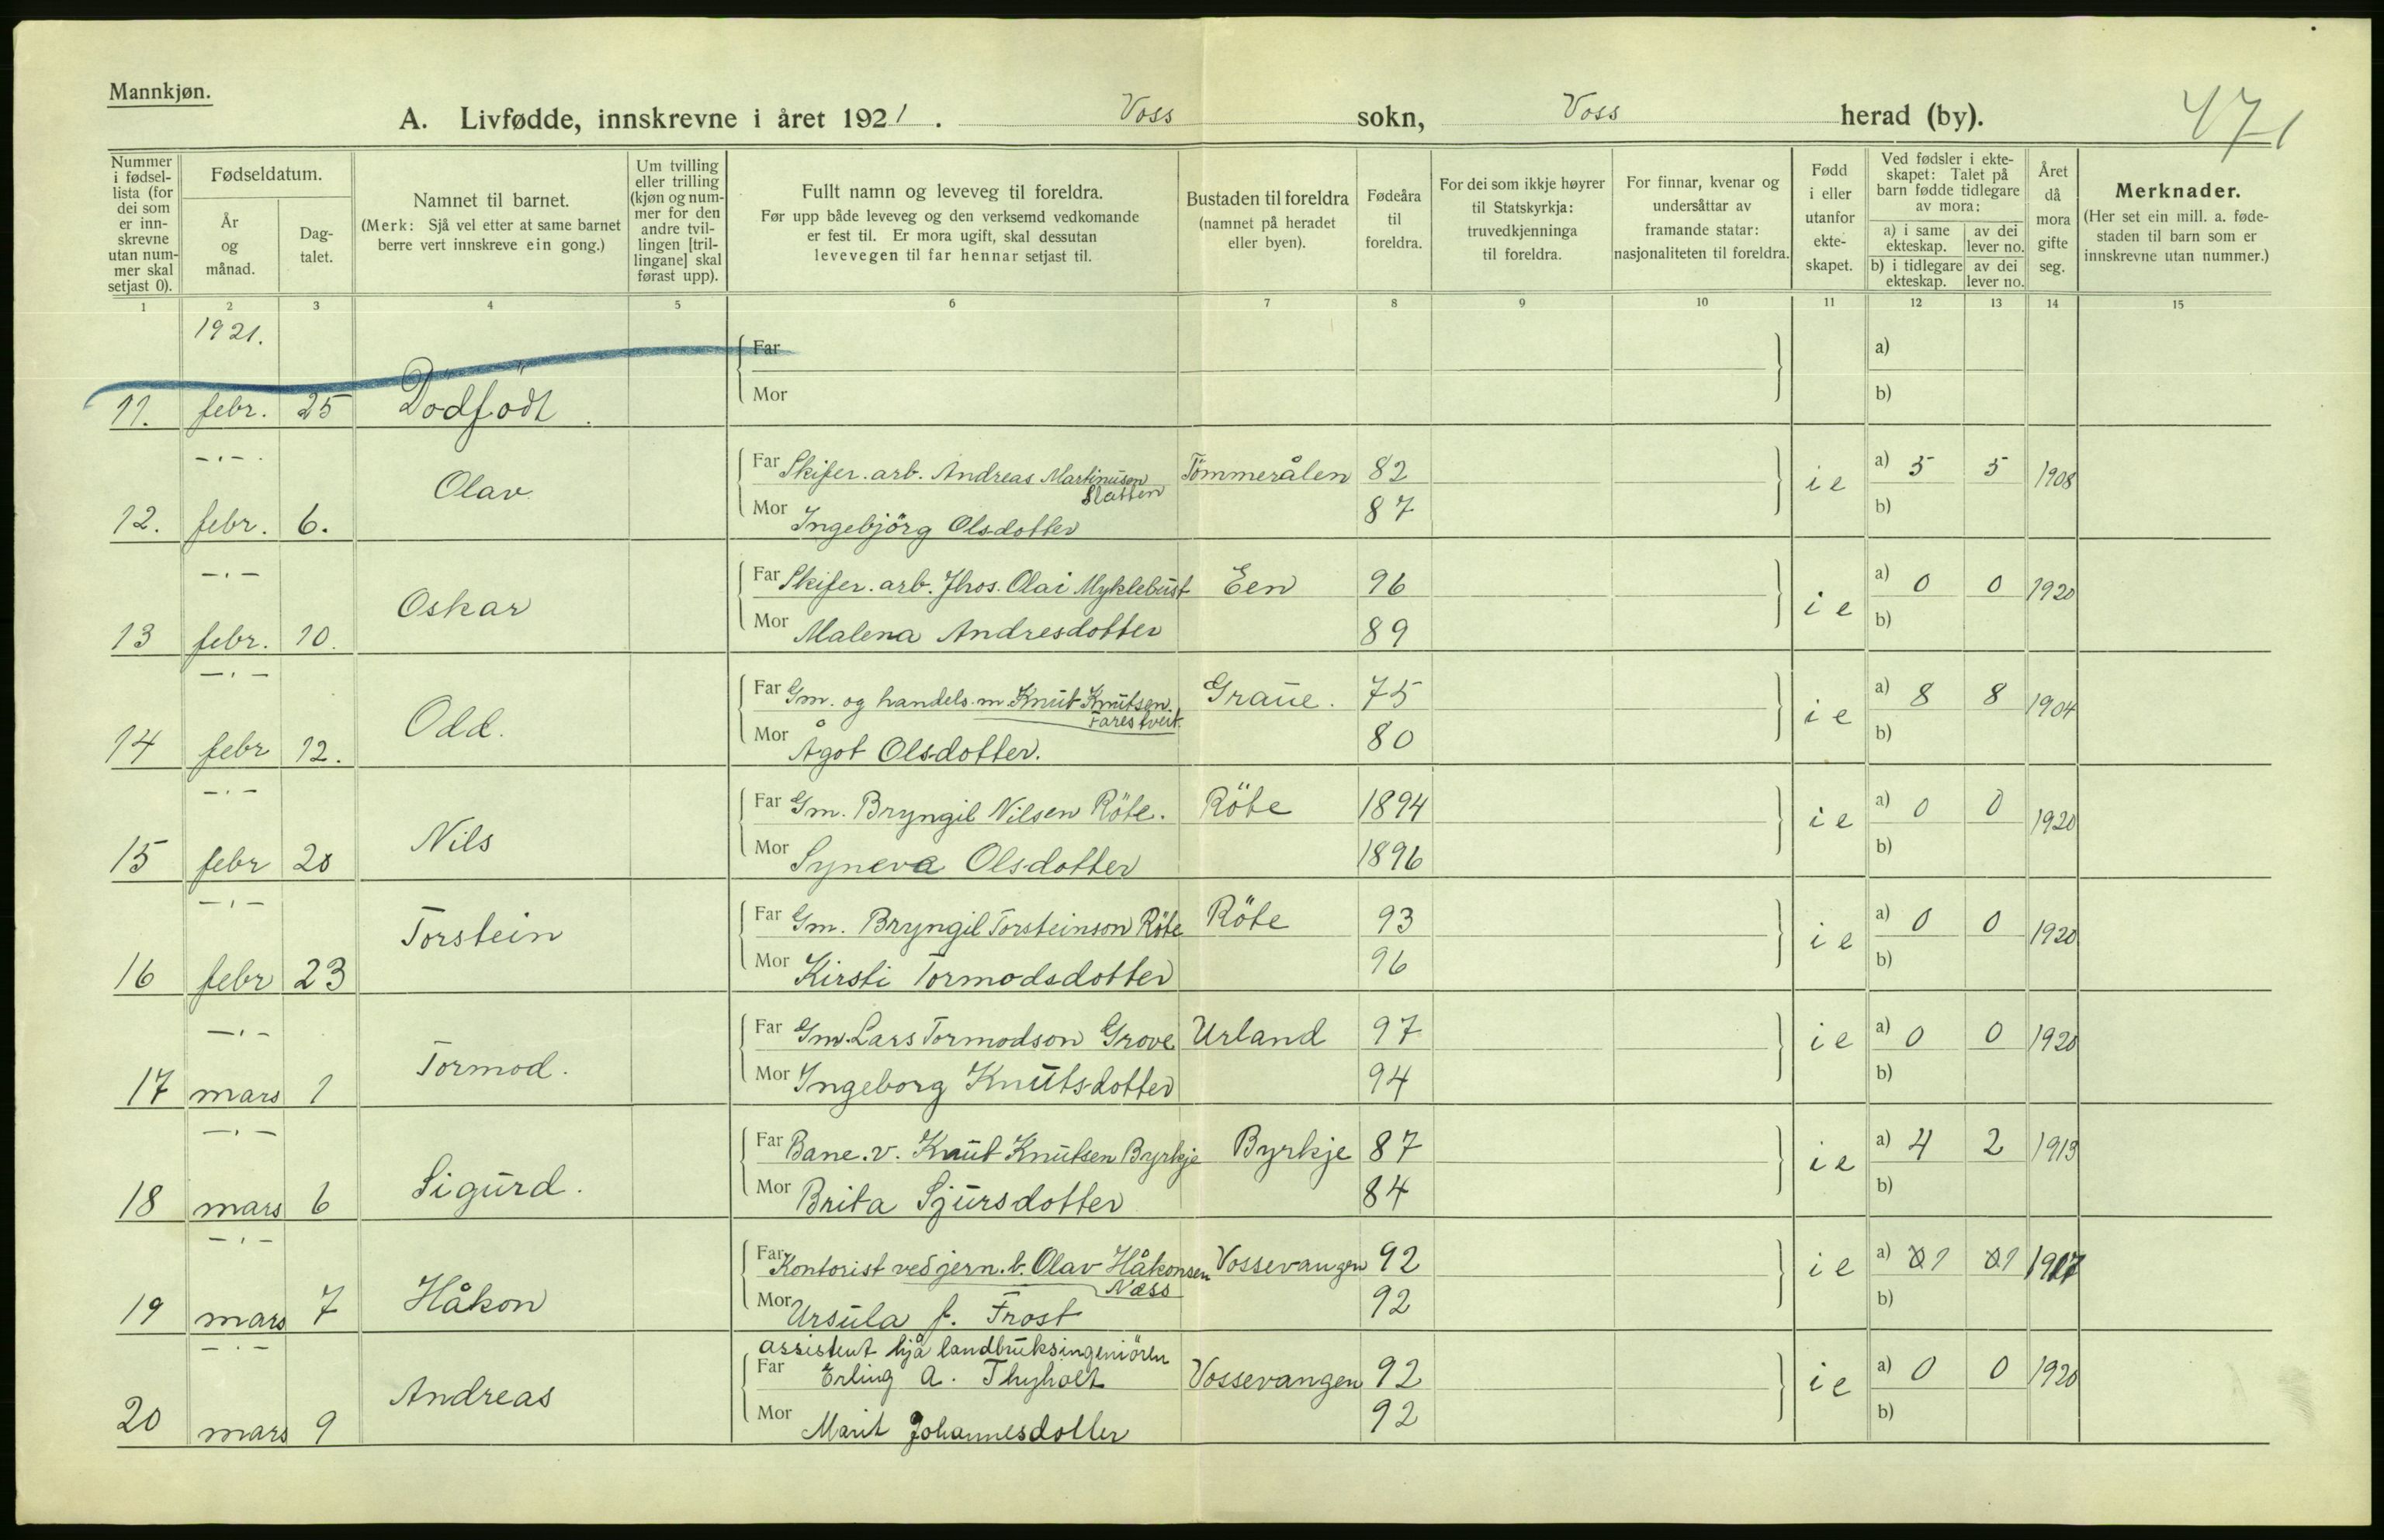 Mannkjøn.
A. Livfødde, innskrevne i året 1921. Voss sokn, Voss herad (by).
471
Nummer i fødsel-lista (for dei som er inn-skrevne utan num-mer skal setjast 0).
Fødseldatum.
År og månad.
Dag-talet.
Namnet til barnet.
(Merk: Sjå vel etter at same barnet berre vert innskreve ein gong.)
Um tvilling eller trilling (kjøn og num-mer for den andre tvil-lingen [tril-lingane] skal førast upp).
Fullt namn og leveveg til foreldra.
Før upp både leveveg og den verksemd vedkomande er fest til. Er mora ugift, skal dessutan levevegen til far hennar setjast til.
Bustaden til foreldra
(namnet på heradet eller byen).
Fødeåra til foreldra.
For dei som ikkje høyrer til Statskyrkja: truvedkjenninga til foreldra.
For finnar, kvenar og undersåttar av framande statar: nasjonaliteten til foreldra.
Fødd i eller utanfor ekte-skapet.
Ved fødsler i ekte-skapet: Talet på barn fødde tidlegare av mora:
a) i same ekteskap.
av dei lever no.
b) i tidlegare ekteskap.
av dei lever no.
Året då mora gifte seg.
Merknader.
(Her set ein mill. a. føde-staden til barn som er innskrevne utan nummer.)
1 2 3 4 5 6 7 8 9 10 11 12 13 14 15
1921.
Far a)
Mor b)
11. febr. 25 Dödfödt.
-"- Far Skifer. arb. Andreas Martinusen Tömmerålen 82 i e a) 5 5 1908
Slatten
12. febr. 6. Olav Mor Ingebjörg Olsdotter 87 b)
-"- Far Skifer. arb. Jhos. Olai Myklebust Een 96 i e a) 0 0 1920
13 febr. 10. Oskar Mor Malena Andresdotter 89 b)
-"- Far Gm. og handels.m. Knut Knutsen Graue. 75 i e a) 8 8 1904
Farestveit
14 febr 12. Odd. Mor Ågot Olsdotter. 80 b)
-"- Far Gm. Bryngil Nilsen Röte. Röte 1894 i e a) 0 0 1920
15 febr 20 Nils Mor Syneva Olsdotter 1896 b)
-"- Far Gm. Bryngil Torsteinson Röte Röte 93 i e a) 0 0 1920
16 febr 23 Torstein Mor Kirsti Tormodsdotter 96 b)
-"- Far Gm. Lars Tormodson Grove Urland 97 i e a) 0 0 1920
17 mars 1 Tormod. Mor Ingeborg Knutsdotter 94 b)
-"- Far Bane.v. Knut Knutsen Byrkje Byrkje 87 i e a) 4 2 1913
18 mars 6 Sigurd. Mor Brita Sjursdotter 84 b)
-"- Far Kontorist ved jern.b. Olav Håkonsen Vossevangen 92 i e a) 1 1 1917
Næss
19 mars 7 Håkon Mor Ursula f. Frost 92 b)
assistent hjå landbruksingeniören
-"- Far Erling A. Thyholt Vossevangen 92 i e a) 0 0 1920
20 mars 9 Andreas Mor Marit Johannesdotter 92 b)